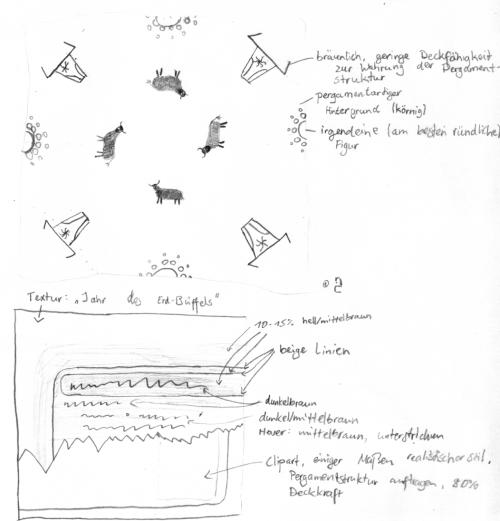 bräunlich, geringe Deckfähigkeit
zur Wahrung der Pergament-
struktur
pergamentartiger
Hintergrund (körnig)
irgendeine (am besten rundliche)
Figur
Textur: „Jahr des Erd-Büffels“
10-15% hell/mittelbraun
beige Linien
dunkelbraun
dunkel/mittelbraun
Hover: mittelbraun, unterstrichen
Clipart, einiger Maßen realistischer Stil,
Pergamentstruktur auftragen, 80%
Deckkraft